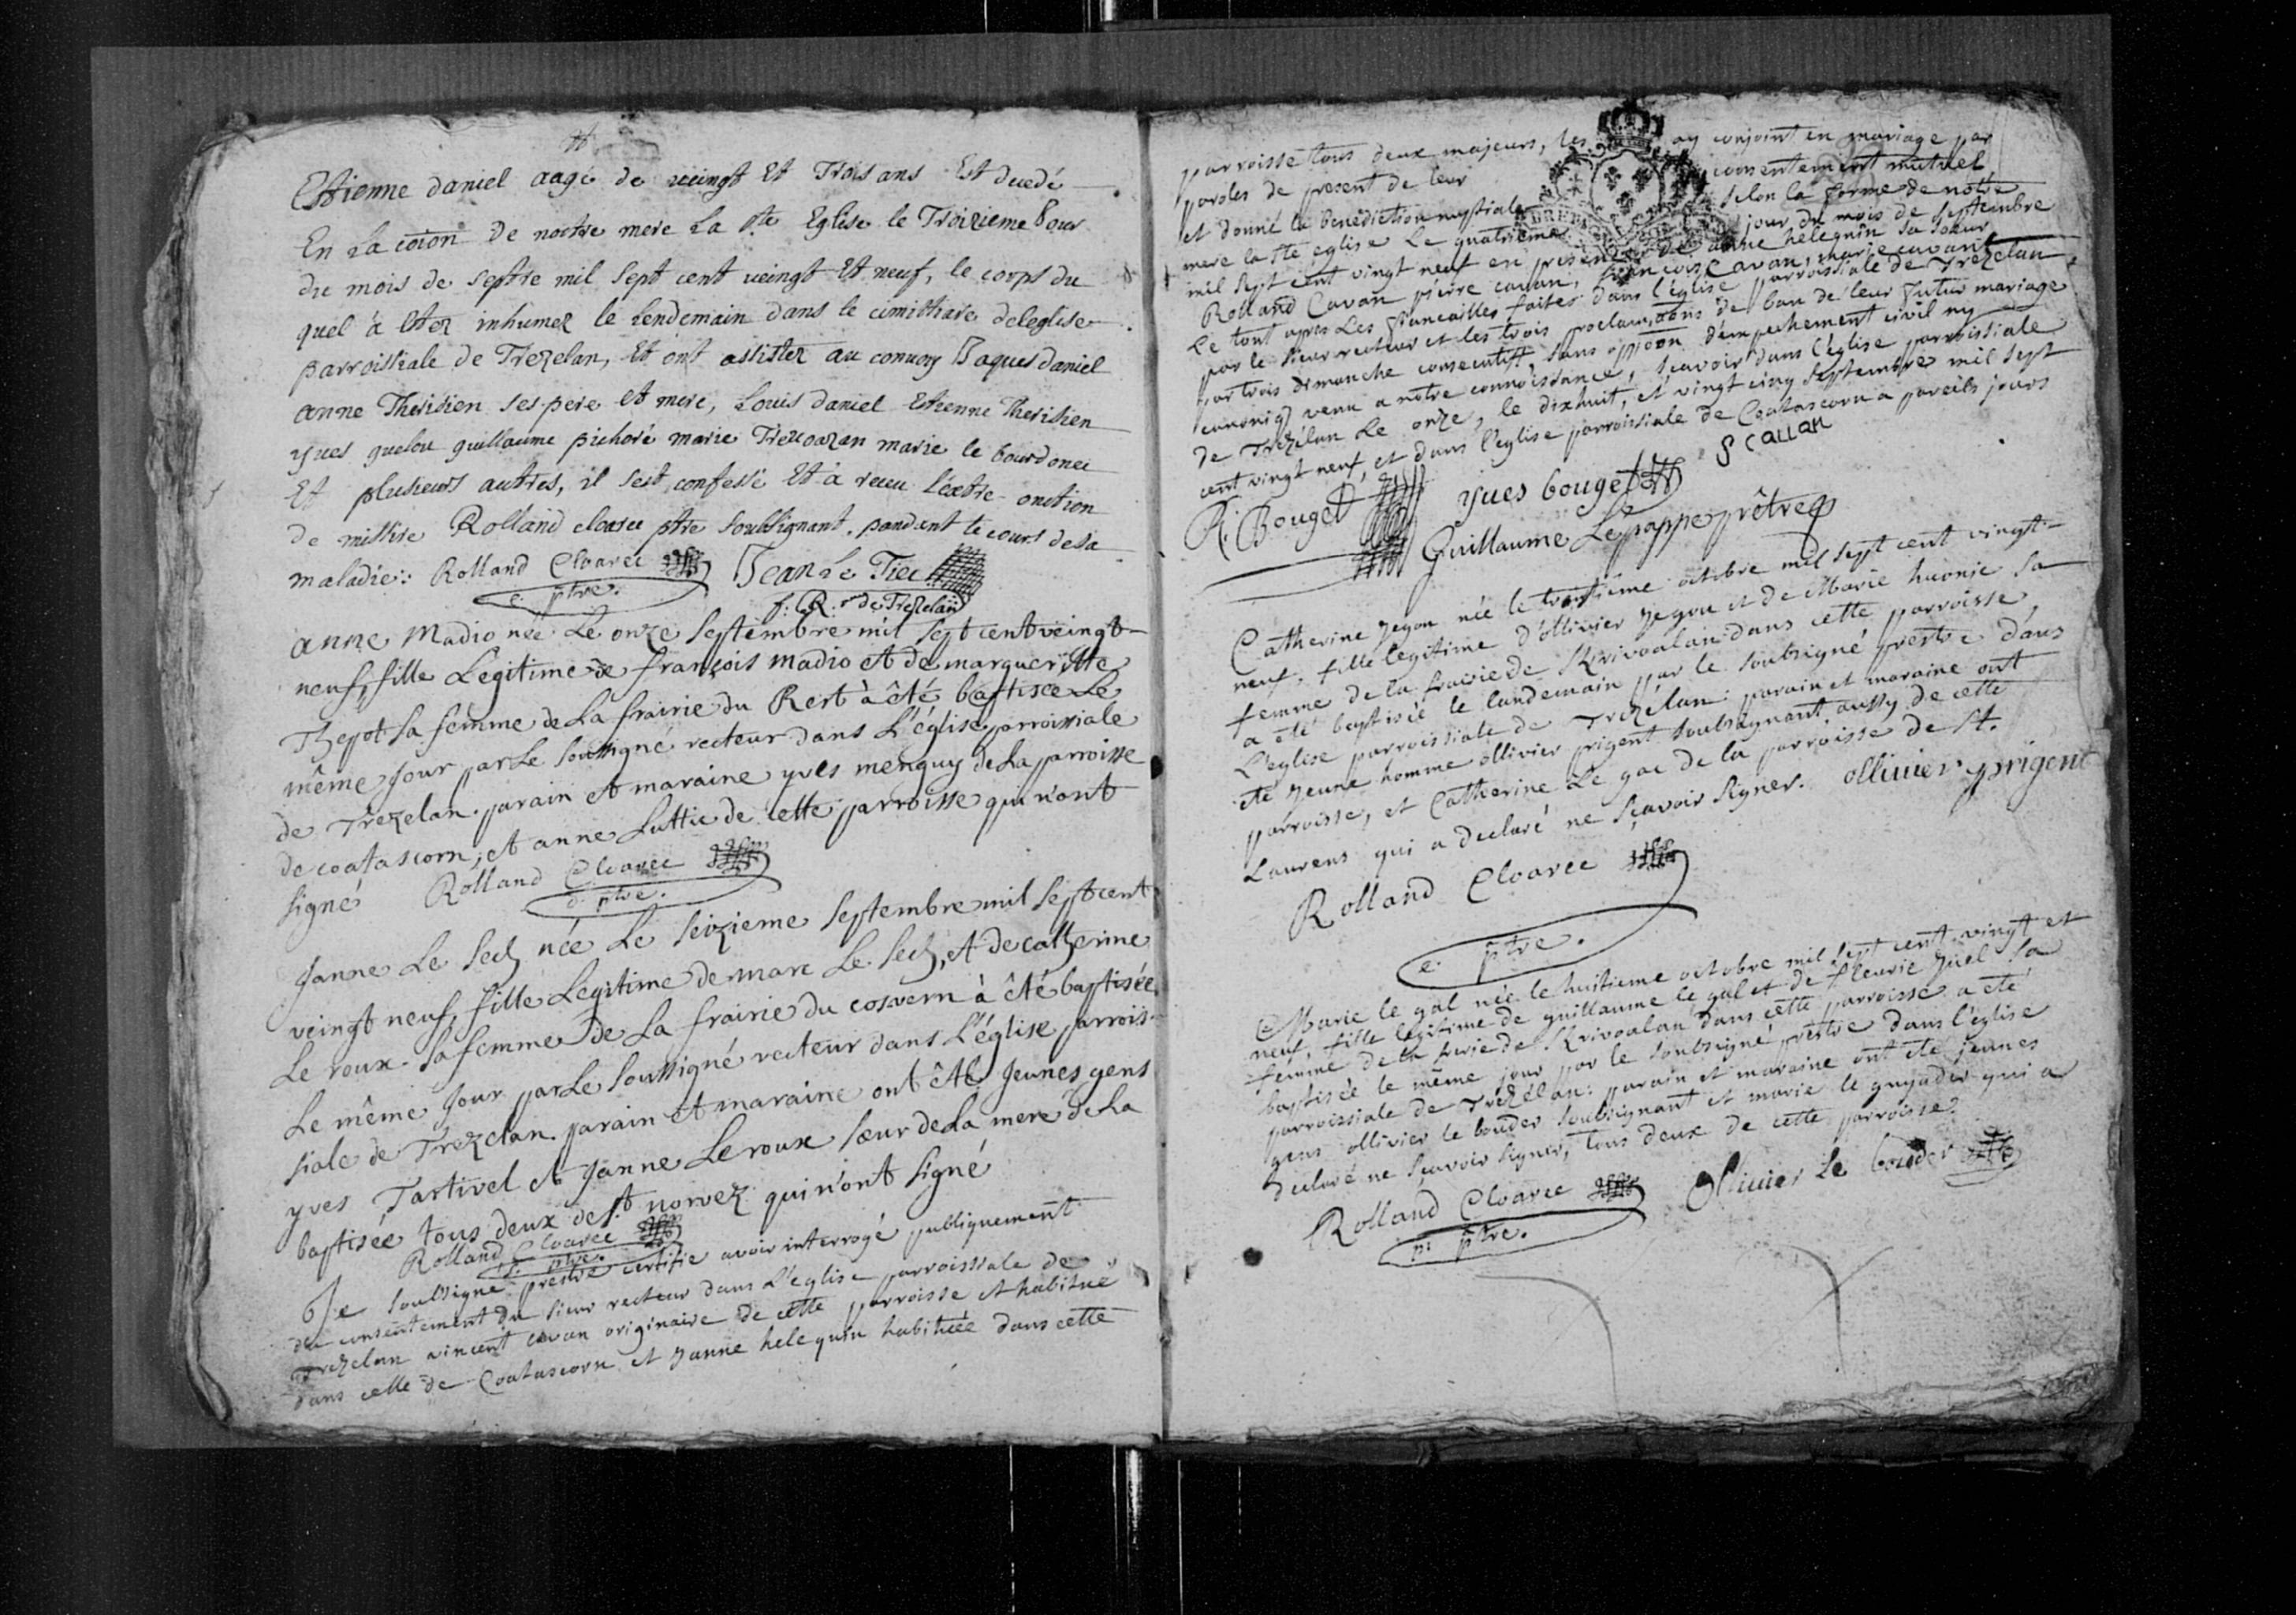 Estienne daniel aagé de veingt Et Trois ans Est decedé
En La coion De nostre mere La Ste Eglise le Troizieme Jour
du mois de septre mil sept cent veingt Et neuf, le corps du
quel a Etez inhumez le Lendemain dans le cimitliare deleglise
parroissiale de Trezelan, Et ont assister au convoy Jaques daniel
anne Therisien ses pere et mere, Louis daniel Estienne Therisien
yves guelou guillaume pichoré marie Trevoazan marie le bourdonec
Et plusieurs autres, il sest confessé Et a receu l'extre-onction
de missire Rolland cloarec ptre soubsignant. pandent le cours de sa
maladie: Rolland Cloarec Jean Le Tiec
c. ptre. f: R:r de Trezelan
anne Madio née Le onze septembre mil sept cent veingt-
neuf, fille Légitime de françois madio et de margueritte
Thepot sa femme de La frairie du Rest à été baptisée Le
même Jour par Le soussigné recteur dans L'église parroissiale
de Trezelan. parain et maraine yves menguy de La parroisse
de coatascorn, et anne Luttic de cette parroisse qui n'ont
signé Rolland Cloarec
c. ptre.
Janne Le Sech née Le seizieme septembre mil sept cent
veingt neuf, fille Légitime de marc Le Sech, et de catherine
Le roux sa femme de La frairie du cosvern à été baptisée
Le même Jour par Le soussigné recteur dans L'église parrois-
siale de Trezelan. parain et maraine ont été Jeunes gens
yves Tartivel et Janne Le roux sœur de La mere de La
baptisée tous deux de st norvez qui n'ont signé
Rolland Cloarec
c. ptre.
Je soubsigné prestre certifie avoir interrogé publiquement
du consentement du sieur recteur dans L'eglise parroissiale de
Trezelan vincent cavan originaire de cette parroisse et habitué
dans celle de Coatascorn et Janne helequin habituée dans cette
parroisse tous deux majeurs, les ay conjoint en mariage par
paroles de present de leur consentement mutuel
et donné la benediction nuptiale selon la forme de notre
mere la ste eglise Le quatrieme jour du mois de septembre
mil sept cent vingt neuf en presence de anne helequin sa sœur
Rolland Cavan pierre cavan, françois Cavan, marie cavan
Le tout apres Les fiancailles faites dans l'église parroissiale de Trezelan
par le sieur recteur et les trois proclamations de ban de leur futur mariage
par trois dimanche consecutifs sans opoon d'empechement civil ny
canoniq venu a notre connoissance, scavoir dans l'église parroissiale
de Trezélan Le onze, le dixhuit, et vingt cinq septembre mil sept
cent vingt neuf, et dans l'eglise parroissiale de Coatascorn a pareils jours
R: Bouget yves bouget
Guillaume Le pappe prêtre
Catherine Jegou née le troisième octobre mil sept cent vingt-
neuf, fille legitime d'ollivier Jegou et de Marie huonic sa
femme de la frairie de Krivoalan dans cette parroisse,
a eté baptisée le landemain par le soubsigné prestre dans
L'eglise parroissiale de Trezélan: parain et maraine ont
eté Jeune homme ollivier prigent soubsignant aussy de cette
parroisse, et Catherine Le gac de la parroisse de st.
Laurens qui a declaré ne sçavoir signer. ollivier prigent
Rolland Cloarec
c. ptre.
Marie le gal née le huitieme octobre mil sept cent vingt et
neuf, fille legitime de guillaume le gal et de fleurie Juel sa
femme de la frerie de Krivoalan dans cette parroisse a eté
baptisée le même jour par le soubsigné prestre dans l'eglise
parroissiale de Trezélan: parain et maraine ont eté jeunes
gens ollivier le bouder soubsignant et marie le guyader qui a
declaré ne sçavoir signer, tous deux de cette parroisse.
Rolland Cloarec Ollivier Le bouder
ptre.